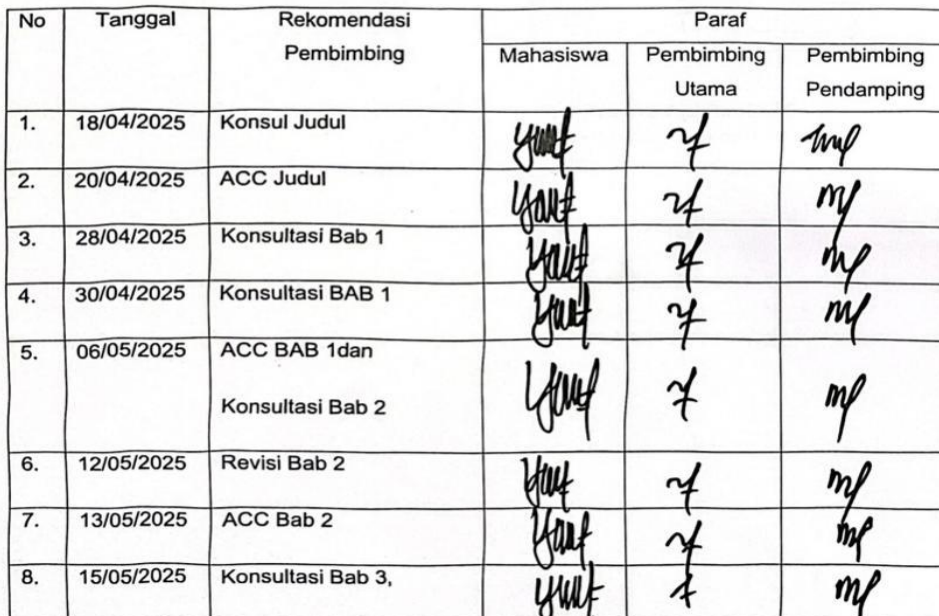 No Tanggal Rekomendasi Pembimbing Paraf
Mahasiswa Pembimbing Utama Pembimbing Pendamping
1. 18/04/2025 Konsul Judul
2. 20/04/2025 ACC Judul
3. 28/04/2025 Konsultasi Bab 1
4. 30/04/2025 Konsultasi BAB 1
5. 06/05/2025 ACC BAB 1dan
Konsultasi Bab 2
6. 12/05/2025 Revisi Bab 2
7. 13/05/2025 ACC Bab 2
8. 15/05/2025 Konsultasi Bab 3,